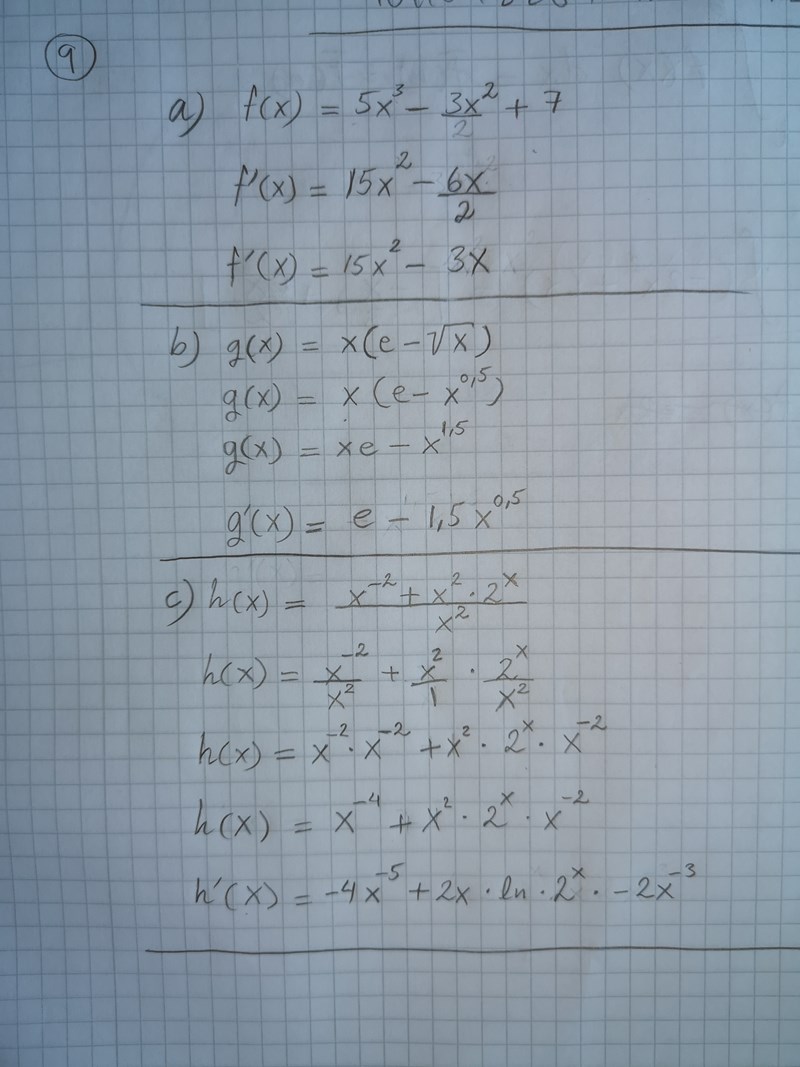 9
a) f(x) = 5x³ - 3x²/2 + 7
f'(x) = 15x² - 6x/2
f'(x) = 15x² - 3x
b) g(x) = x(e - √x)
g(x) = x(e - x^0,5)
g(x) = xe - x^1,5
g'(x) = e - 1,5x^0,5
c) h(x) = (x⁻² + x² · 2^x)/x²
h(x) = x⁻²/x² + x²/1 · 2^x/x²
h(x) = x⁻² · x⁻² + x² · 2^x · x⁻²
h(x) = x⁻⁴ + x² · 2^x · x⁻²
h'(x) = -4x⁻⁵ + 2x · ln · 2^x · -2x⁻³